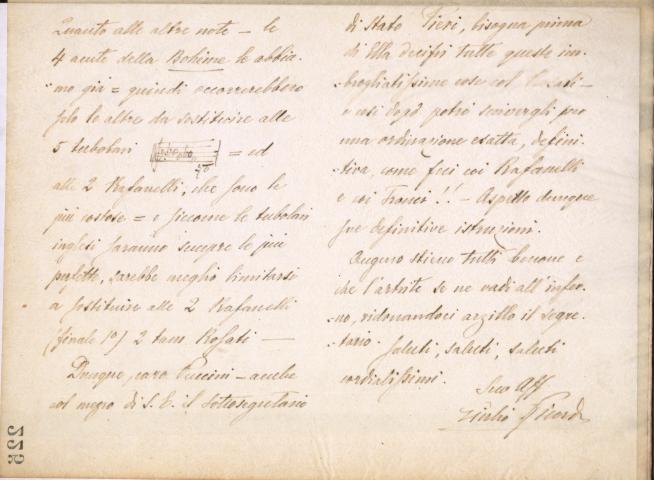 Quanto alle altre note – le
4 acute della Bohème le abbia-
mo già = quindi occorrerebbero
solo le altre da sostituire alle
5 tubolari = ed
alle 2 Rafanelli, che sono le
più costose = e siccome le tubolari
inglesi saranno sempre le più
perfette, sarebbe meglio limitarsi
a sostituire alle 2 Rafanelli
(finale 1º) 2 tam Rosati —
Dunque, caro Puccini – anche
col mezzo di S. E. il Sottosegretario
di Stato Fieri, bisogna prima
di Ella decifri tutte queste im-
brogliatissime cose col
e così dopo potrò scrivergli, per
una ordinazione esatta, defini-
tiva, come feci coi Rafanelli
e coi Franci!! – Aspetto dunque
sue definitive istruzioni.
Auguro stieno tutti benone e
che l'artrite se ne vadi all'infer-
no, ridonandoci arzillo il segre-
tario.
Saluti, saluti, saluti
cordialissimi.
Suo Aff
Giulio Ricordi
225